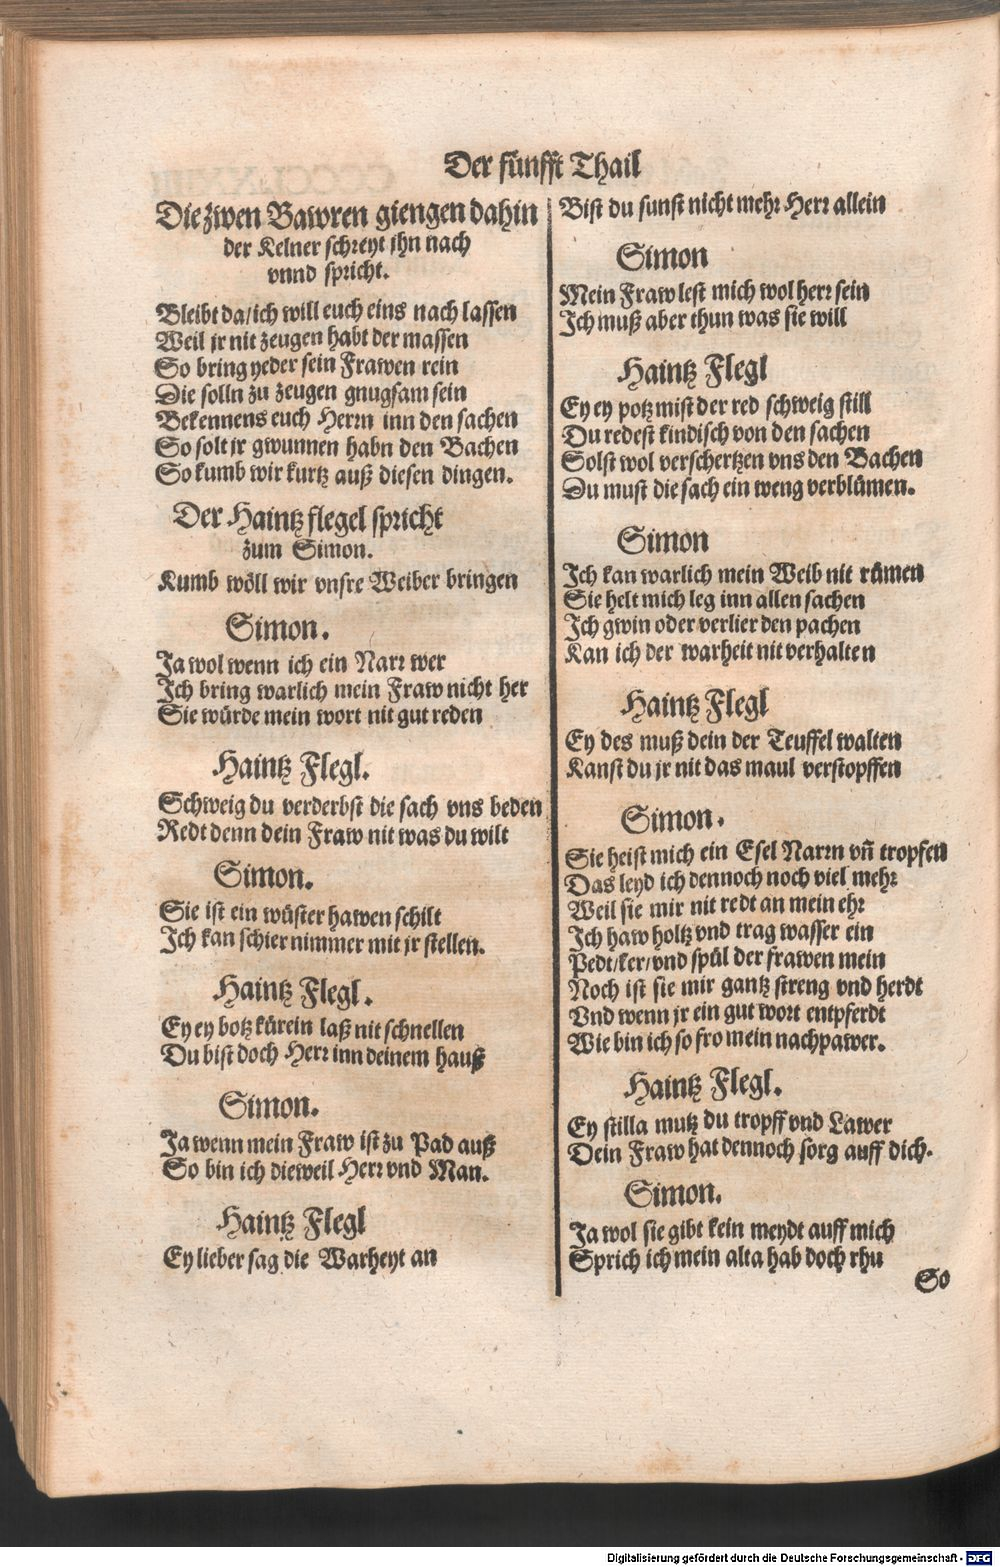 Der fünfft Thail
Die zwen Bawren giengen dahin
der Kelner schreyt jhn nach
vnnd spricht.
Bleibt da/ich will euch eins nach lassen
Weil jr nit zeugen habt der massen
So bring yeder sein Frawen rein
Die solln zu zeugen gnugsam sein
Bekennens euch Herrn inn den sachen
So solt jr gwunnen habn den Bachen
So kumb wir kurtz auß diesen dingen.
Der Haintz flegel spricht
zum Simon.
Kumb wöll wir vnsre Weiber bringen
Simon.
Ja wol wenn ich ein Narr wer
Ich bring warlich mein Fraw nicht her
Sie würde mein wort nit gut reden
Haintz Flegl.
Schweig du verderbst die sach vns beden
Redt denn dein Fraw nit was du wilt
Simon.
Sie ist ein wüster hawen schilt
Ich kan schier nimmer mit jr stellen.
Haintz Flegl.
Ey ey botz kürein laß nit schnellen
Du bist doch Herr inn deinem hauß
Simon.
Ja wenn mein Fraw ist zu Pad auß
So bin ich dieweil Herr vnd Man.
Haintz Flegl
Ey lieber sag die Warheyt an
Bist du sunst nicht mehr Herr allein
Simon
Mein Fraw lest mich wol herr sein
Ich muß aber thun was sie will
Haintz Flegl
Ey ey potz mist der red schweig still
Du redest kindisch von den sachen
Solst wol verschertzen vns den Bachen
Du must die sach ein weng verblümen.
Simon
Ich kan warlich mein Weib nit rümen
Sie helt mich leg inn allen sachen
Ich gwin oder verlier den pachen
Kan ich der warheit nit verhalten
Haintz Flegl
Ey des muß dein der Teuffel walten
Kanst du jr nit das maul verstopffen
Simon.
Sie heist mich ein Esel Narrn vñ tropfen
Das leyd ich dennoch noch viel mehr
Weil sie mir nit redt an mein ehr
Ich haw holtz vnd trag wasser ein
Pedt/ker/vnd spül der frawen mein
Noch ist sie mir gantz streng vnd herdt
Vnd wenn jr ein gut wort entpferdt
Wie bin ich so fro mein nachpawer.
Haintz Flegl.
Ey stilla mutz du tropff vnd Lawer
Dein Fraw hat dennoch sorg auff dich.
Simon.
Ja wol sie gibt kein meydt auff mich
Sprich ich mein alta hab doch rhu
So
Digitalisierung gefördert durch die Deutsche Forschungsgemeinschaft - DFG